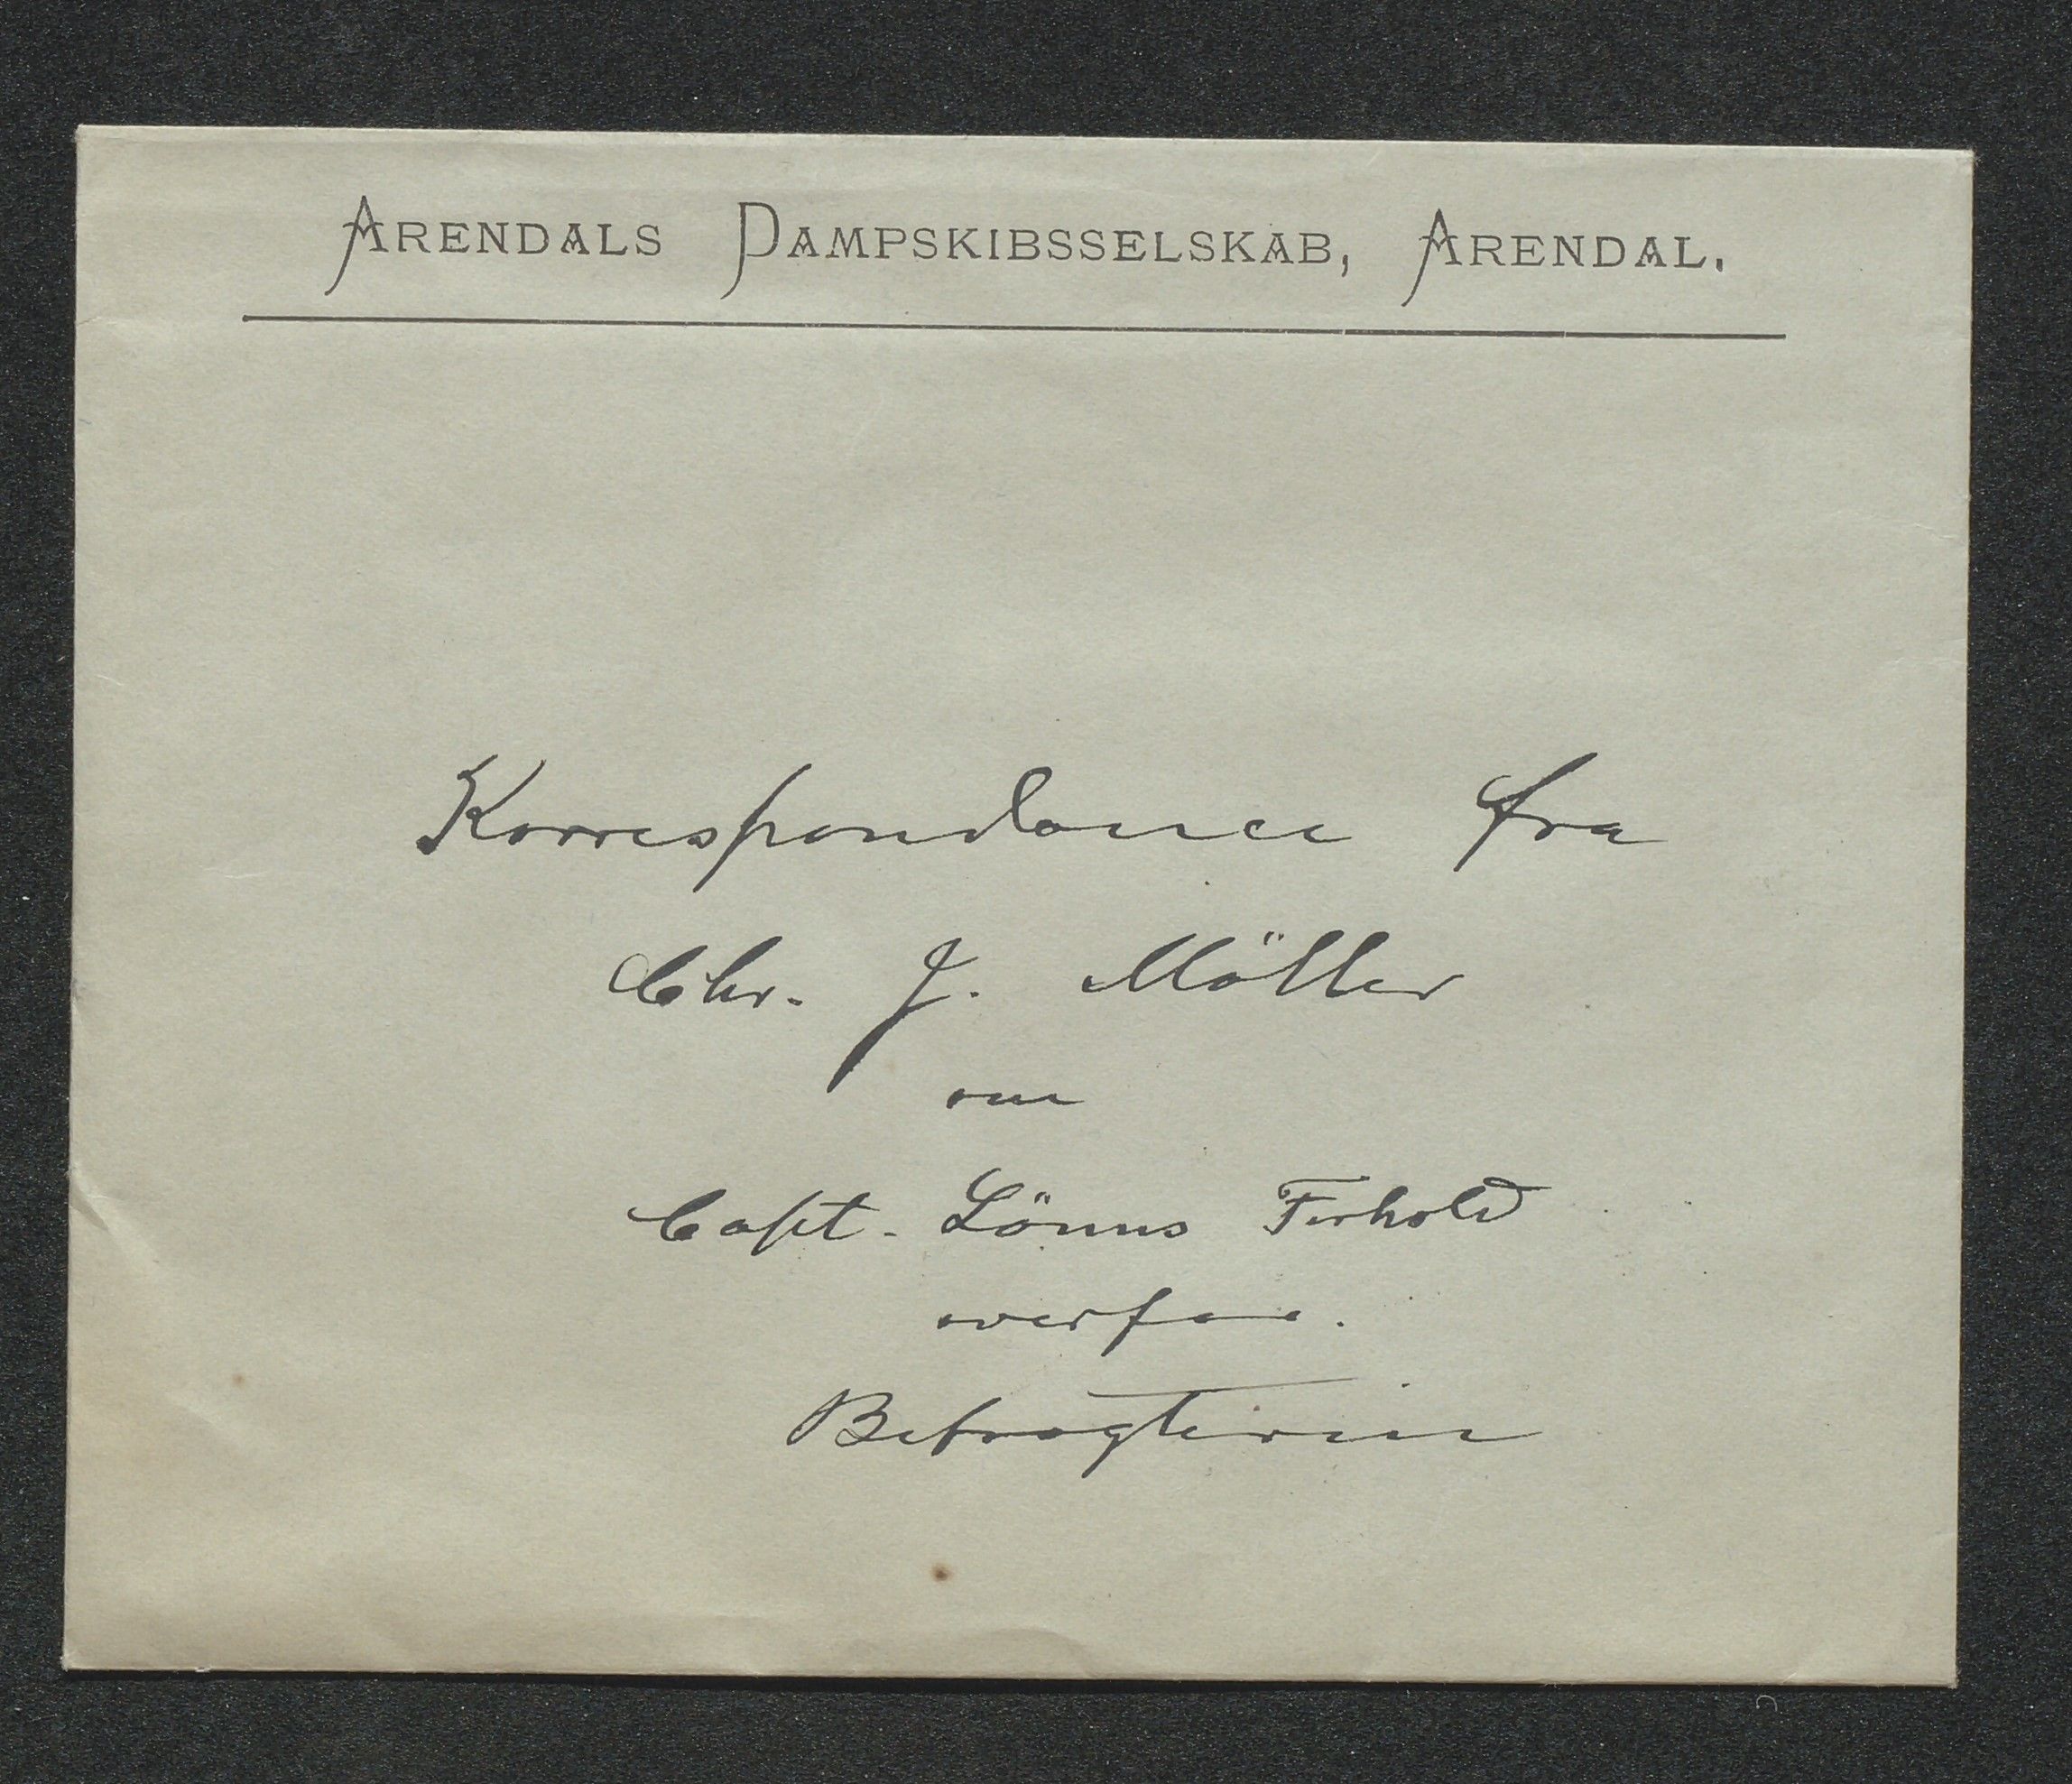 ARENDALS DAMPSKIBSSELSKAB, ARENDAL.
Korrespondance fra
Chr. J. Möller
om
Capt. Lönns Forhold
overfor
Befragteren